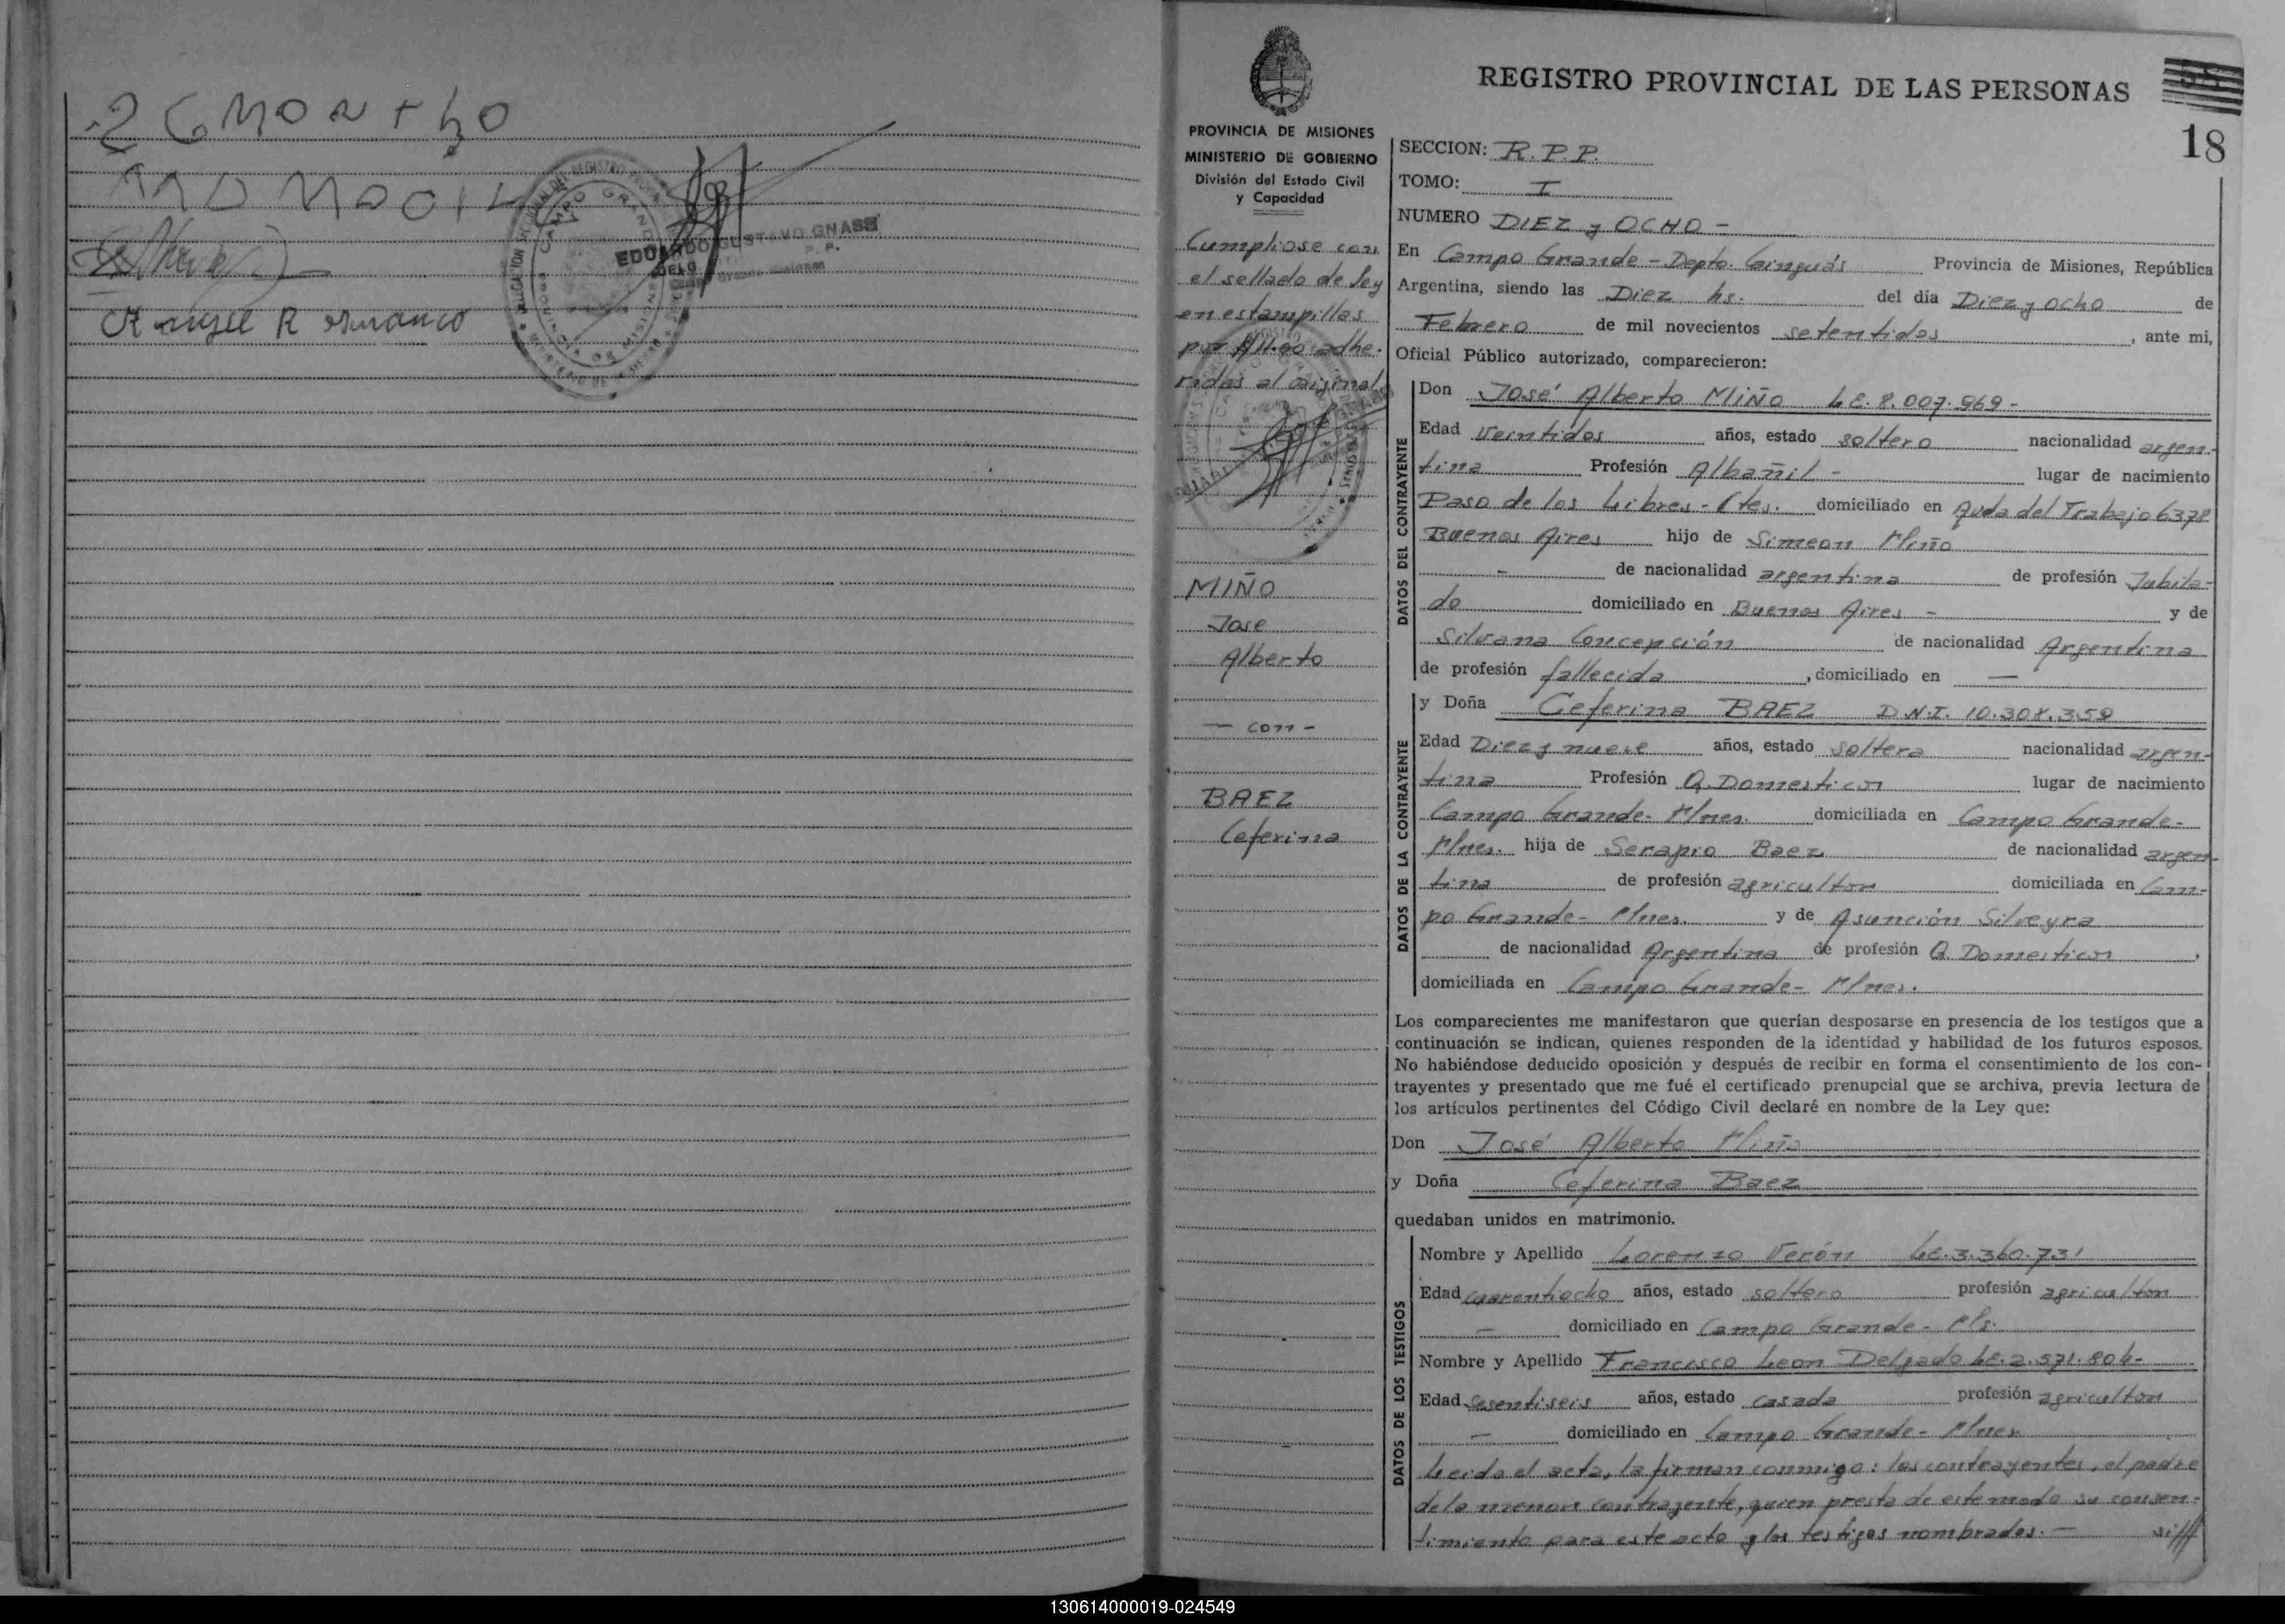 EDUARDO GUSTAVO GNASS
CAMPO GRANDE
REGISTRO PROVINCIAL DE LAS PERSONAS
18
PROVINCIA DE MISIONES
MINISTERIO DE GOBIERNO
División del Estado Civil
y Capacidad
Cumpliose con
el sellado de ley
en estampillas
por adhe-
ridas al original
MIÑO
Jose
Alberto
- con -
BAEZ
Ceferina
SECCION: R.P.P.
TOMO: I
NUMERO DIEZ y OCHO -
En Campo Grande - Depto. Cainguás Provincia de Misiones, República
Argentina, siendo las Diez hs. del día Diez y ocho de
Febrero de mil novecientos setentidos, ante mi,
Oficial Público autorizado, comparecieron:
DATOS DEL CONTRAYENTE
Don José Alberto MIÑO L.E. 8.007.969-
Edad Veintidos años, estado soltero nacionalidad argen-
tina Profesión Albañil - lugar de nacimiento
Paso de los Libres - Ctes. domiciliado en Avda del Trabajo 6378
Buenos Aires hijo de Simeon Miño
- de nacionalidad argentina de profesión Jubila-
do domiciliado en Buenos Aires - y de
Silvana Concepción de nacionalidad Argentina
de profesión fallecida, domiciliado en —
DATOS DE LA CONTRAYENTE
y Doña Ceferina BAEZ D.N.I. 10.308.350
Edad Diez y nueve años, estado soltera nacionalidad argen-
tina Profesión Q. Domesticos lugar de nacimiento
Campo Grande - Mnes. domiciliada en Campo Grande -
Mnes. hija de Serapio Baez de nacionalidad argen-
tina de profesión agricultor domiciliada en Cam-
po Grande - Mnes. y de Asunción Silveyra
de nacionalidad Argentina de profesión Q. Domesticos,
domiciliada en Campo Grande - Mnes.
Los comparecientes me manifestaron que querían desposarse en presencia de los testigos que a
continuación se indican, quienes responden de la identidad y habilidad de los futuros esposos.
No habiéndose deducido oposición y después de recibir en forma el consentimiento de los con-
trayentes y presentado que me fué el certificado prenupcial que se archiva, previa lectura de
los artículos pertinentes del Código Civil declaré en nombre de la Ley que:
Don José Alberto Miño
y Doña Ceferina Baez
quedaban unidos en matrimonio.
DATOS DE LOS TESTIGOS
Nombre y Apellido Lorenzo Verón L.E. 3.360.731
Edad cuarentiocho años, estado soltero profesión agricultor
- domiciliado en Campo Grande - Ms.
Nombre y Apellido Francisco Leon Delgado L.E. 2.571.804-
Edad Sesentiseis años, estado casado profesión agricultor
- domiciliado en Campo Grande - Mnes
Leida el acta, la firman conmigo: los contrayentes, el padre
de la menor contrayente, quien presta de este modo su consen-
timiento para este acto y los testigos nombrados. —
130614000019-024549